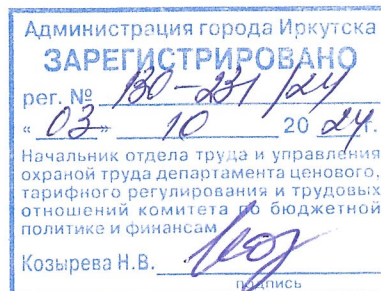 Администрация города Иркутска
ЗАРЕГИСТРИРОВАНО
рег. № 130-231/24
« 03 » 10 20 24 г.
Начальник отдела труда и управления
охраной труда департамента ценового,
тарифного регулирования и трудовых
отношений комитета по бюджетной
политике и финансам
Козырева Н.В.
подпись